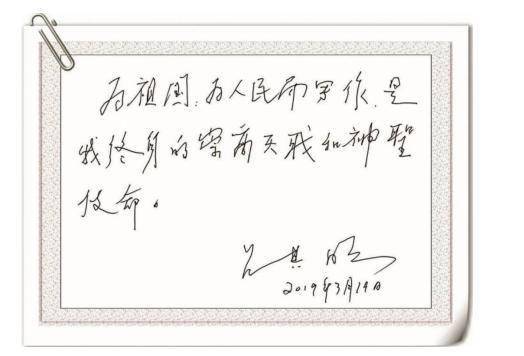 为祖国、为人民而写作,是
我终身的崇高天职和神聖
使命。
吕其明
2019年3月19日